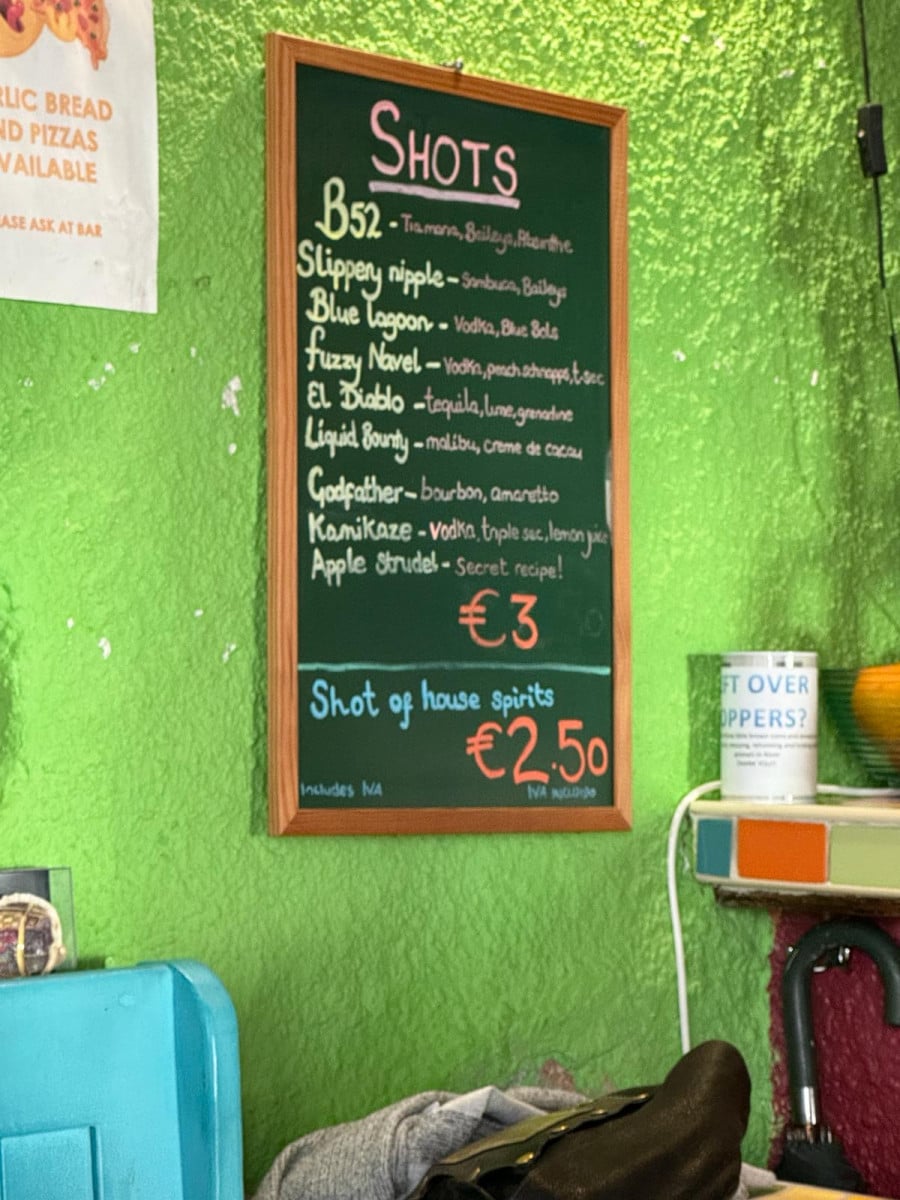 RLIC BREAD
ND PIZZAS
VAILABLE
ASE ASK AT BAR
SHOTS
B52 - Tia maria, Baileys, Absinthe
Slippery nipple - Sambuca, Baileys
Blue lagoon - Vodka, Blue Bols
fuzzy Navel - Vodka, peach schnapps, t-sec
El Diablo - tequila, lime, grenadine
Liquid Bounty - malibu, creme de cacau
Godfather - bourbon, amaretto
Kamikaze - Vodka, triple sec, lemon juice
Apple Strudel - Secret recipe!
€3
Shot of house spirits
€2.50
Includes IVA
IVA INCLUIDO
FT OVER
OPPERS?